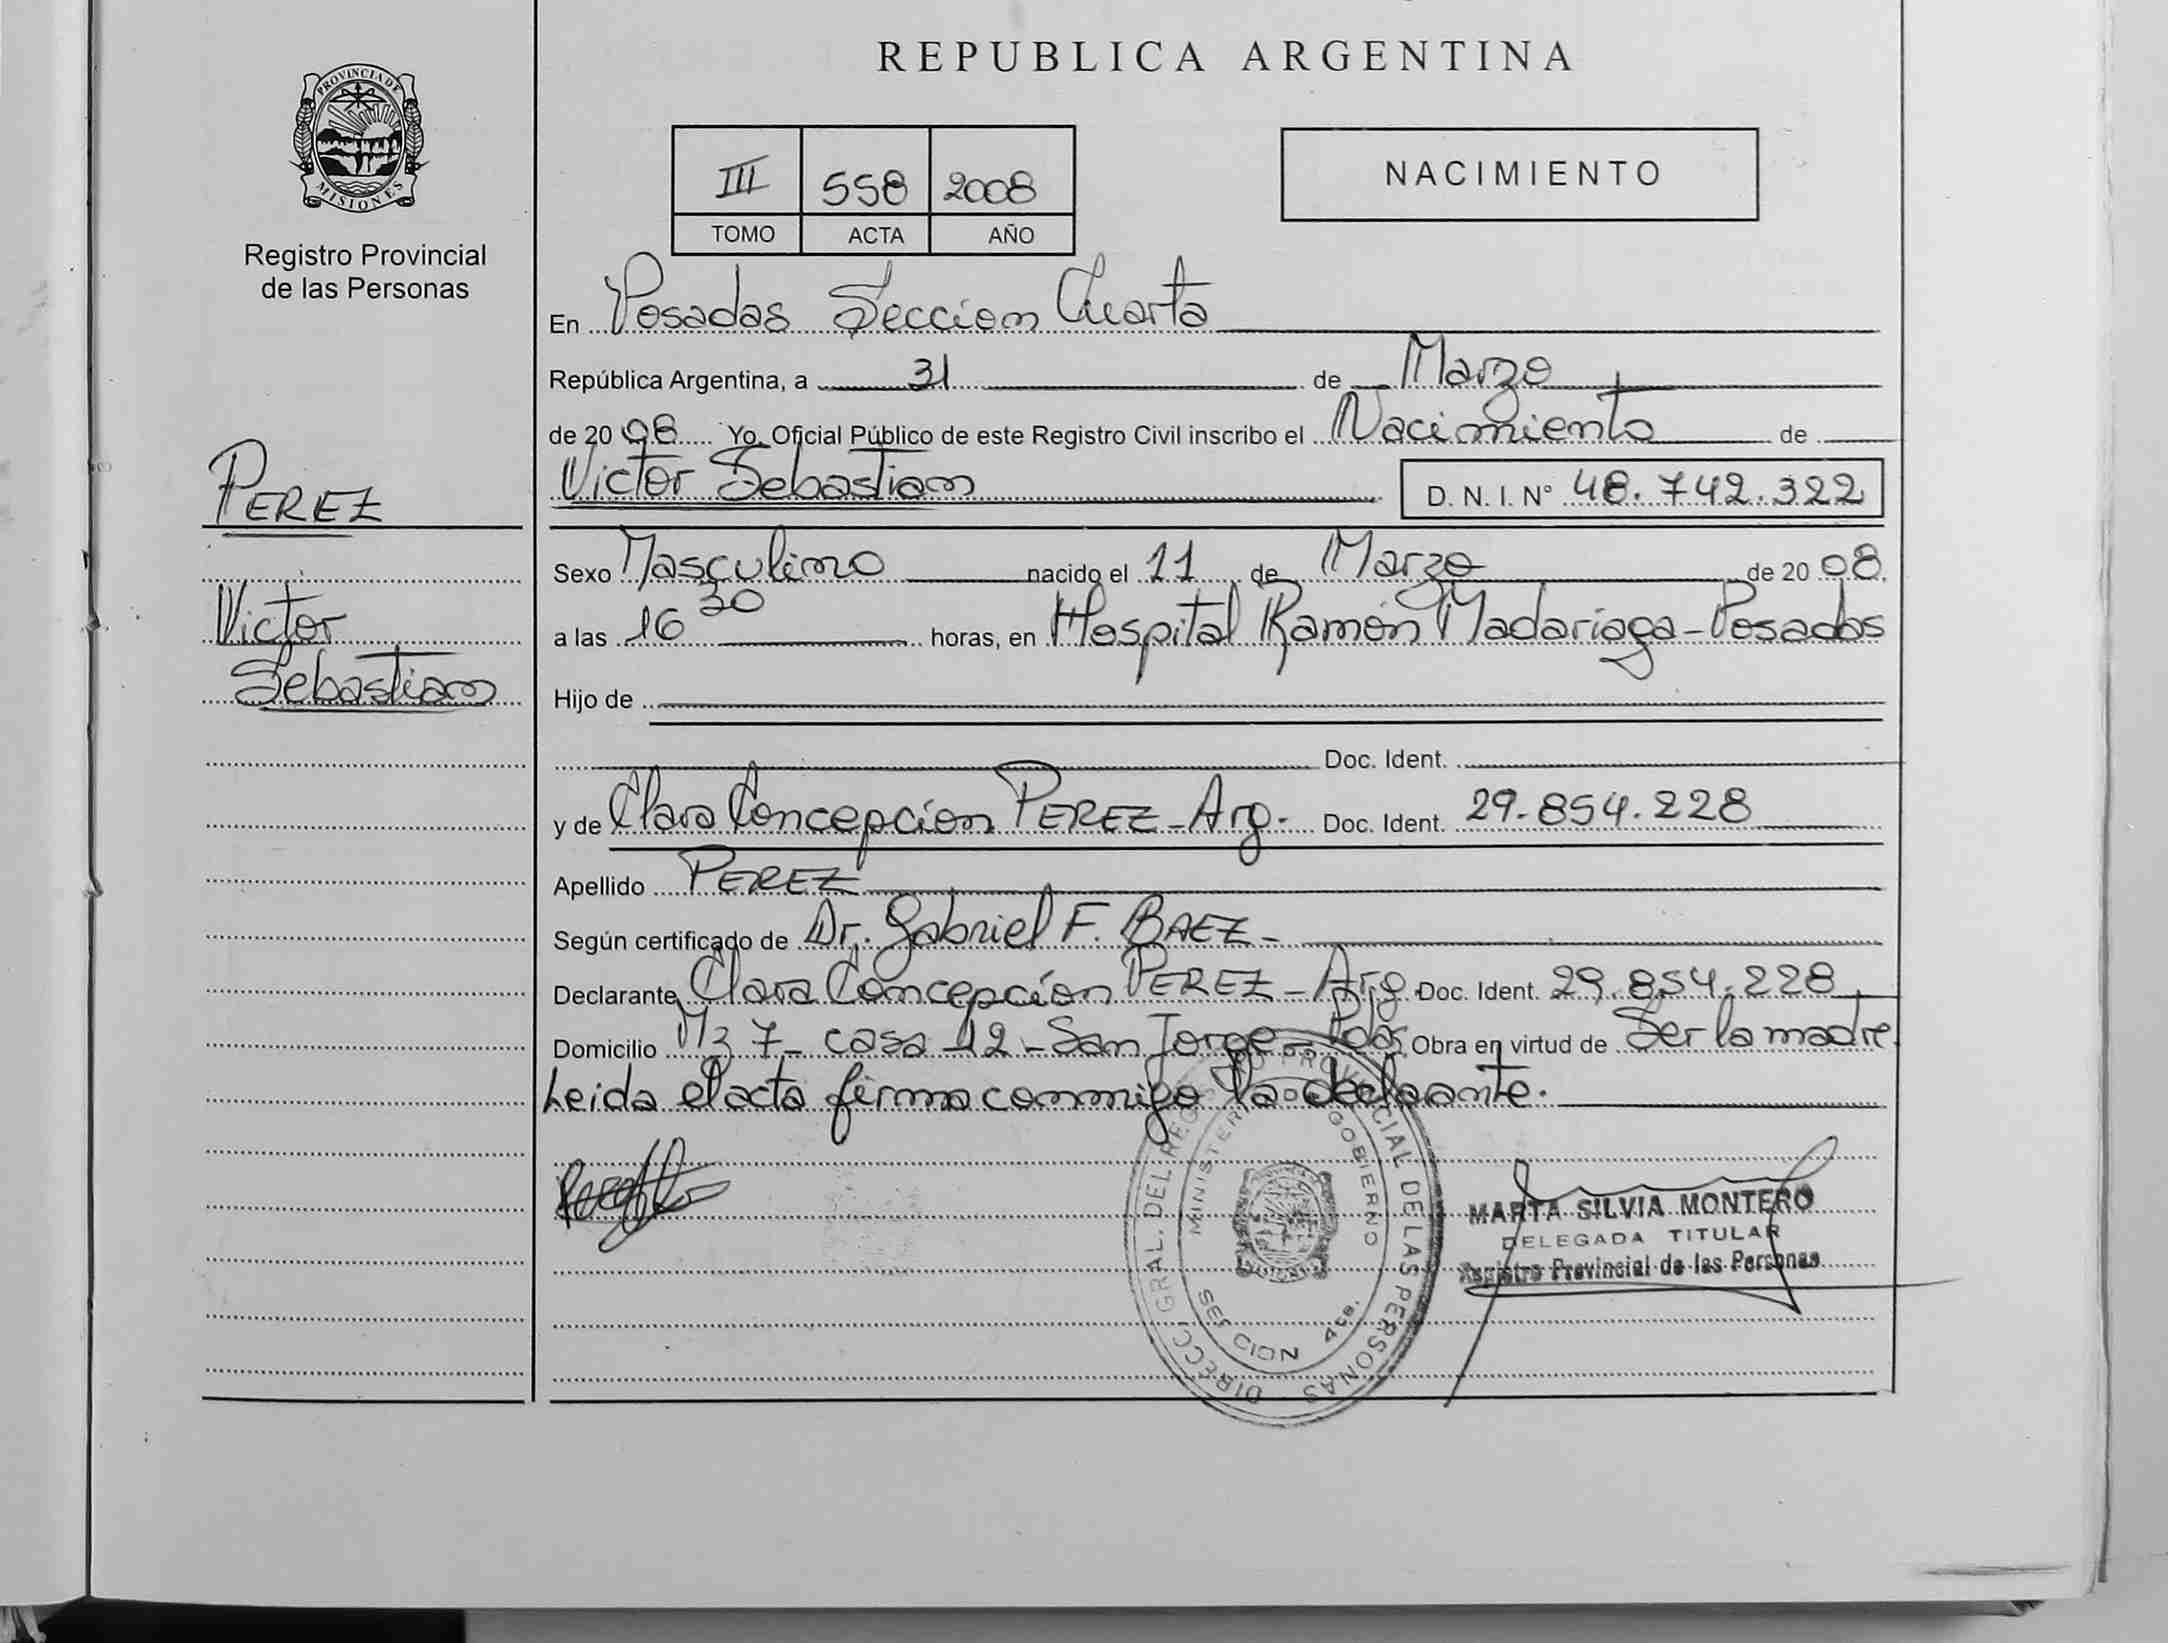 REPUBLICA ARGENTINA
PROVINCIA DE
MISIONES
Registro Provincial
de las Personas
III 558 2008
TOMO ACTA AÑO
NACIMIENTO
En Posadas Seccion Cuarta
República Argentina, a 31 de Marzo
de 2008 Yo, Oficial Público de este Registro Civil inscribo el Nacimiento de
Victor Sebastian D. N. I. N° 48.742.322
PEREZ
Victor
Sebastian
Sexo Masculino nacido el 11 de Marzo de 2008.
a las 16 30 horas, en Hospital Ramón Madariaga - Posadas
Hijo de
Doc. Ident.
y de Clara Concepcion PEREZ - Arg. Doc. Ident. 29.854.228
Apellido PEREZ
Según certificado de Dr. Gabriel F. BAEZ -
Declarante Clara Concepcion PEREZ - Arg. Doc. Ident. 29.854.228
Domicilio Mz 7 - casa 12 - San Jorge - Pdas Obra en virtud de Ser la madre.
Leida el acta firma conmigo la declaante.
DIRECC. GRAL. DEL REGISTRO PROVINCIAL DE LAS PERSONAS
MINISTERIO GOBIERNO
SECCION 4ta.
MARTA SILVIA MONTERO
DELEGADA TITULAR
Registro Provincial de las Personas